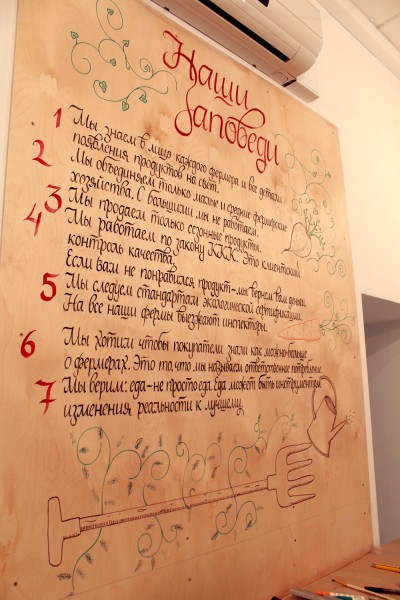 Наши
заповеди
1 Мы знаем в лицо каждого фермера и все детали
появления продуктов на свет.
2 Мы объединяем только малые и средние фермерские
хозяйства. С большими мы не работаем.
3 Мы продаем только сезонные продукты.
4 Мы работаем по закону ККК. Это клиентский
контроль качества.
Если вам не понравился продукт-мы вернем вам деньги.
5 Мы следуем стандартам экологической сертификации.
На все наши фермы выезжают инспекторы.
6 Мы хотим чтобы покупатели знали как можно больше
о фермерах. Это то что мы называем ответственное потребление.
7 Мы верим: еда-не просто еда. Еда может быть инструментом
изменения реальности к лучшему.